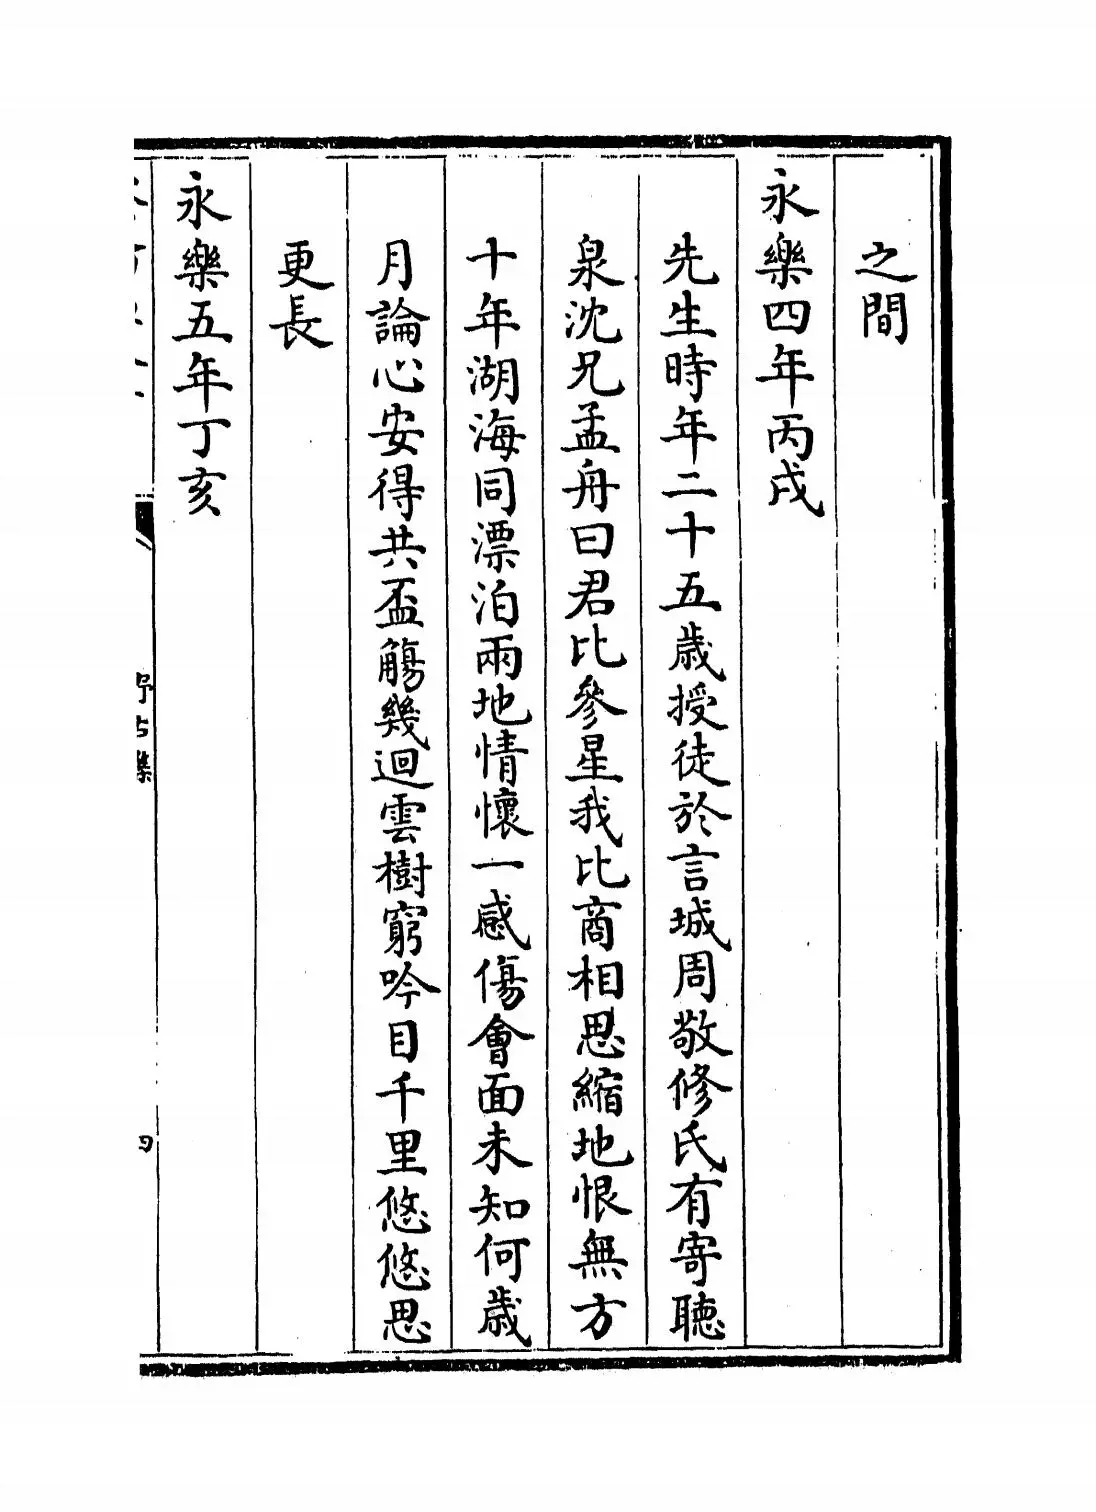 之間
永樂四年丙戌
先生時年二十五歲授徒於言城周敬修氏有寄聽
泉沈兄孟舟曰君比參星我比商相思縮地恨無方
十年湖海同漂泊兩地情懷一感傷會面未知何歲
月論心安得共盃觴幾迴雲樹窮吟目千里悠悠思
更長
永樂五年丁亥